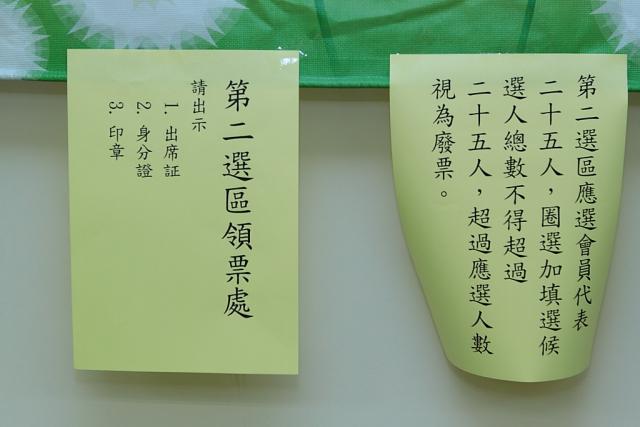 第二選區領票處
請出示
1. 出席証
2. 身分證
3. 印章
第二選區應選會員代表
二十五人，圈選加填選候
選人總數不得超過
二十五人，超過應選人數
視為廢票。